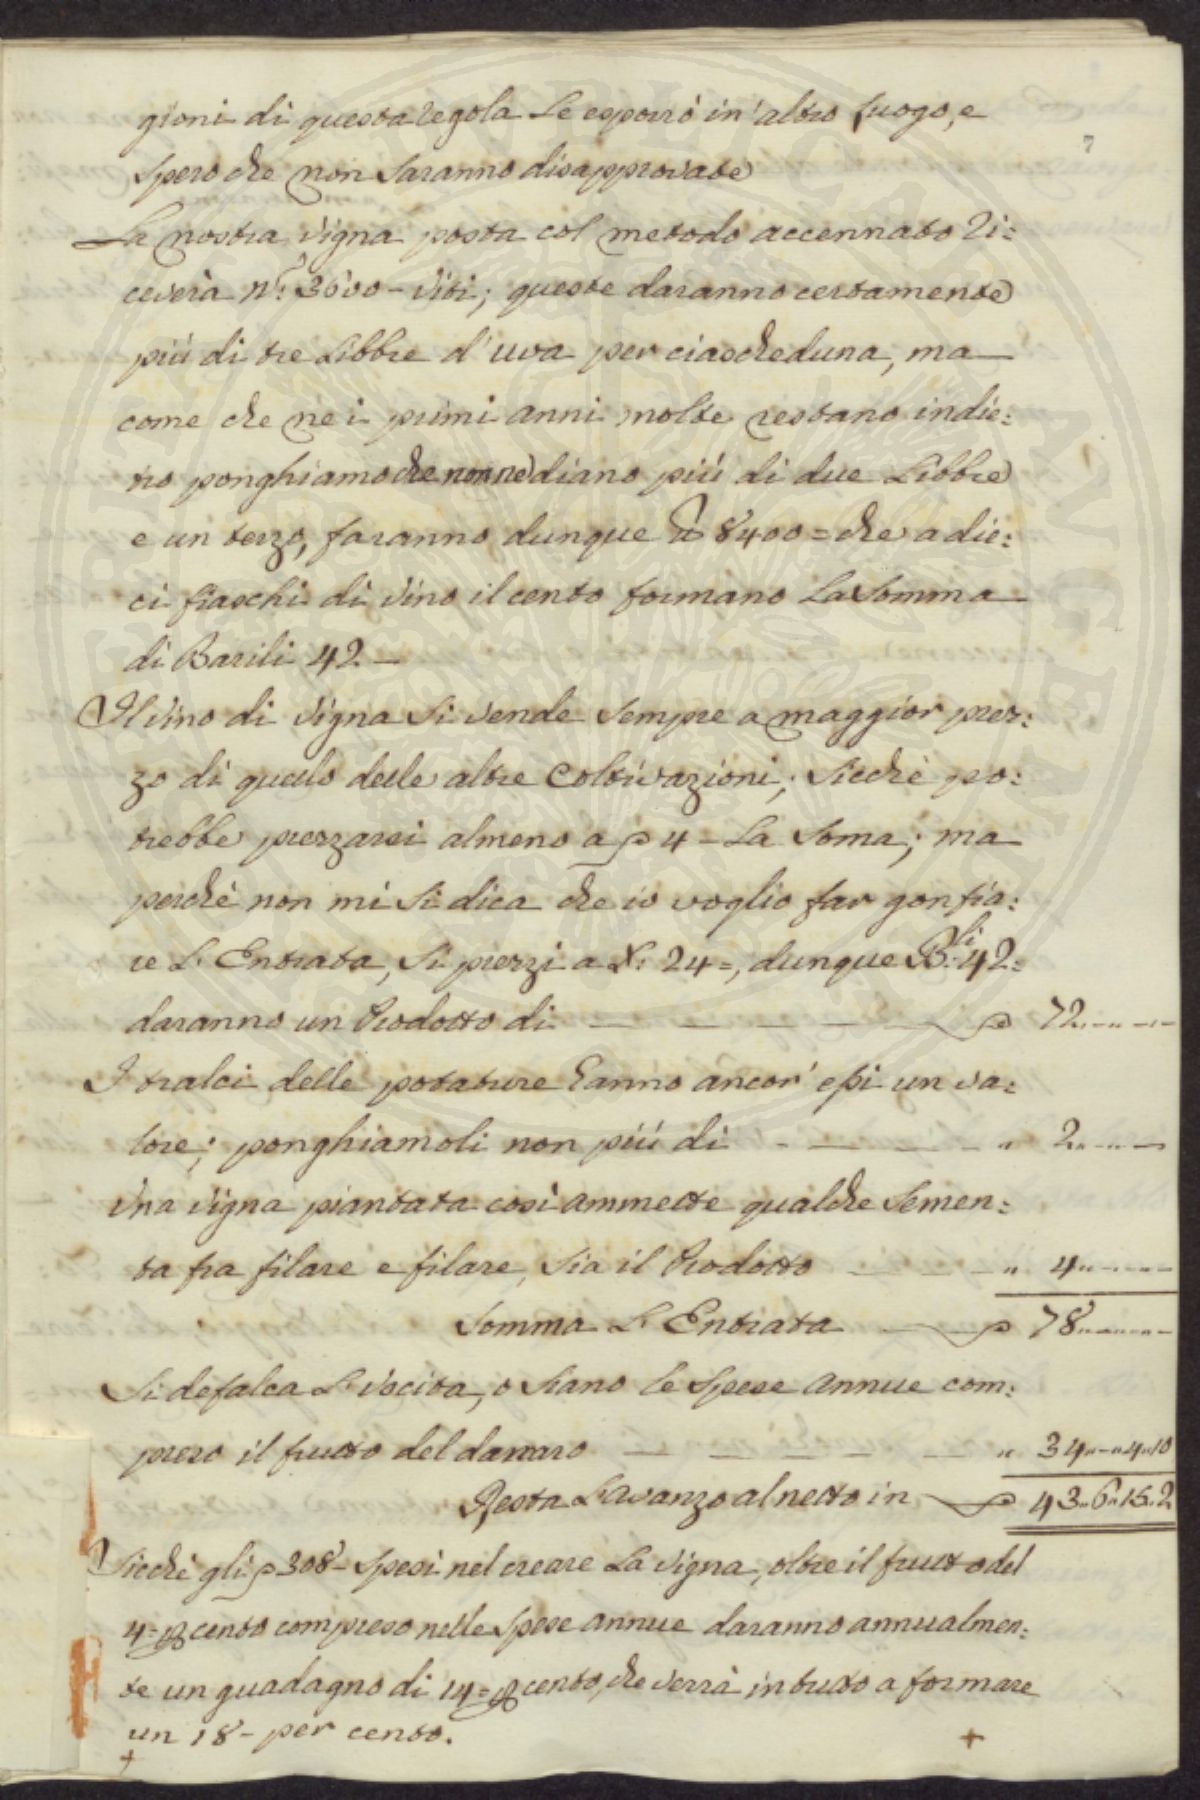 7
gioni di questa regola le esporrò in altro luogo, e
spero che non saranno disapprovate
La nostra vigna posta col metodo accennato ri=
ceverà n.° 3600 - viti; queste daranno certamente
più di tre Libbre d'uva per ciascheduna, ma
come che ne i primi anni molte restano indie=
tro ponghiamo che non ne diano più di due Libbre
e un terzo, faranno dunque ℔ 8400 = che a die=
ci fiaschi di vino il cento formano La somma
di Barili 42 —
Il vino di vigna si vende sempre a maggior prez=
zo di quello delle altre Coltivazioni, sicchè po=
trebbe prezzarsi almeno a ₽ 4 - La Soma; ma
perchè non mi si dica che io voglio far gonfia=
re L'Entrata, si prezzi a L. 24 =, dunque B.li 42 =
daranno un Prodotto di — — — — — ₽ 72 „ — „ — „ —
I tralci delle potature hanno ancor' essi un va=
lore; ponghiamoli non più di — — — „ 2 „ — „ — „ —
Una vigna piantata così ammette qualche semen=
ta fra filare e filare, sia il Prodotto — — — „ 4 „ — „ — „ —
Somma L'Entrata — ₽ 78 „ — „ — „ —
Si defalca L'Uscita, o siano le spese annue com=
preso il frutto del danaro — — — — — „ 34 „ — „ 4 „ 10
Resta L'avanzo al netto in — ₽ 43 „ 6 „ 15 „ 2
Sicchè gli ₽ 308 - spesi nel creare La vigna, oltre il frutto del
4 = per cento compreso nelle spese annue daranno annualmen=
te un guadagno di 14 = per cento, che verrà in tutto a formare
un 18 - per cento.